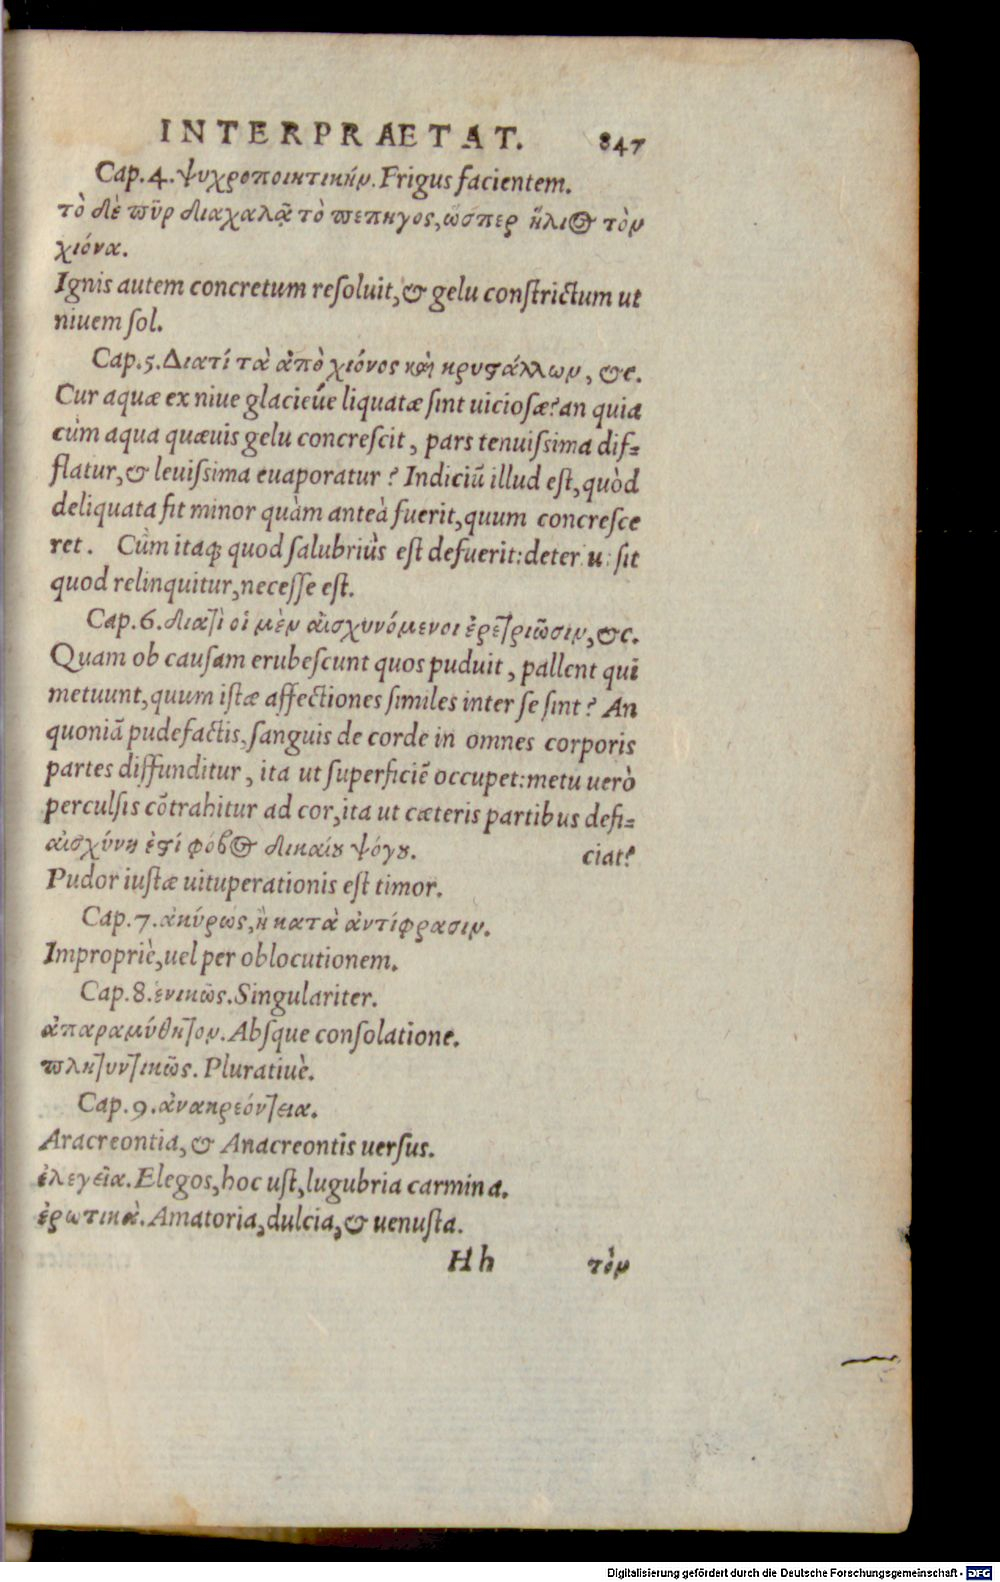 INTERPRAETAT. 847
Cap.4.ψυχροποιητικήν.Frigus facientem.
τὸ δὲ πῦρ διαχαλᾷ τὸ πεπηγος,ὥσπερ ἥλιος τὸν
χιόνα.
Ignis autem concretum reſoluit,& gelu conſtrictum ut
niuem ſol.
Cap.5.Διατί τὰ ἀπὸ χιόνος καὶ κρυστάλλων, &c.
Cur aquæ ex niue glacieúe liquatæ ſint uicioſæ?an quia
cùm aqua quæuis gelu concreſcit, pars tenuiſsima dif=
flatur,& leuiſsima euaporatur? Indiciū illud eſt,quòd
deliquata fit minor quàm anteà fuerit,quum concreſce
ret. Cùm itaq; quod ſalubriùs eſt defuerit:deter u: ſit
quod relinquitur,neceſſe eſt.
Cap.6.διατὶ οἱ μὲν αἰσχυνόμενοι ἐρετριῶσιν,&c.
Quam ob cauſam erubeſcunt quos puduit, pallent qui
metuunt,quum iſtæ affectiones ſimiles inter ſe ſint? An
quoniā pudefactis,ſanguis de corde in omnes corporis
partes diffunditur, ita ut ſuperficiē occupet:metu uerò
perculſis cōtrahitur ad cor,ita ut cæteris partibus defi=
αἰσχύνη ἐστί φόβος δικαίου ψόγου. ciat?
Pudor iuſtæ uituperationis eſt timor.
Cap.7.ἀκύρως,ἢ κατὰ ἀντίφρασιν.
Impropriè,uel per oblocutionem.
Cap.8.ἑνικῶς.Singulariter.
ἀπαραμύθητον.Abſque conſolatione.
πληθυντικῶς. Pluratiuè.
Cap.9.ἀνακρεόντεια.
Aracreontia,& Anacreontis uerſus.
ἐλεγεῖα.Elegos,hoc uſt,lugubria carmina.
ἐρωτικὰ.Amatoria,dulcia,& uenuſta.
Hh τὸν
Digitalisierung gefördert durch die Deutsche Forschungsgemeinschaft - DFG